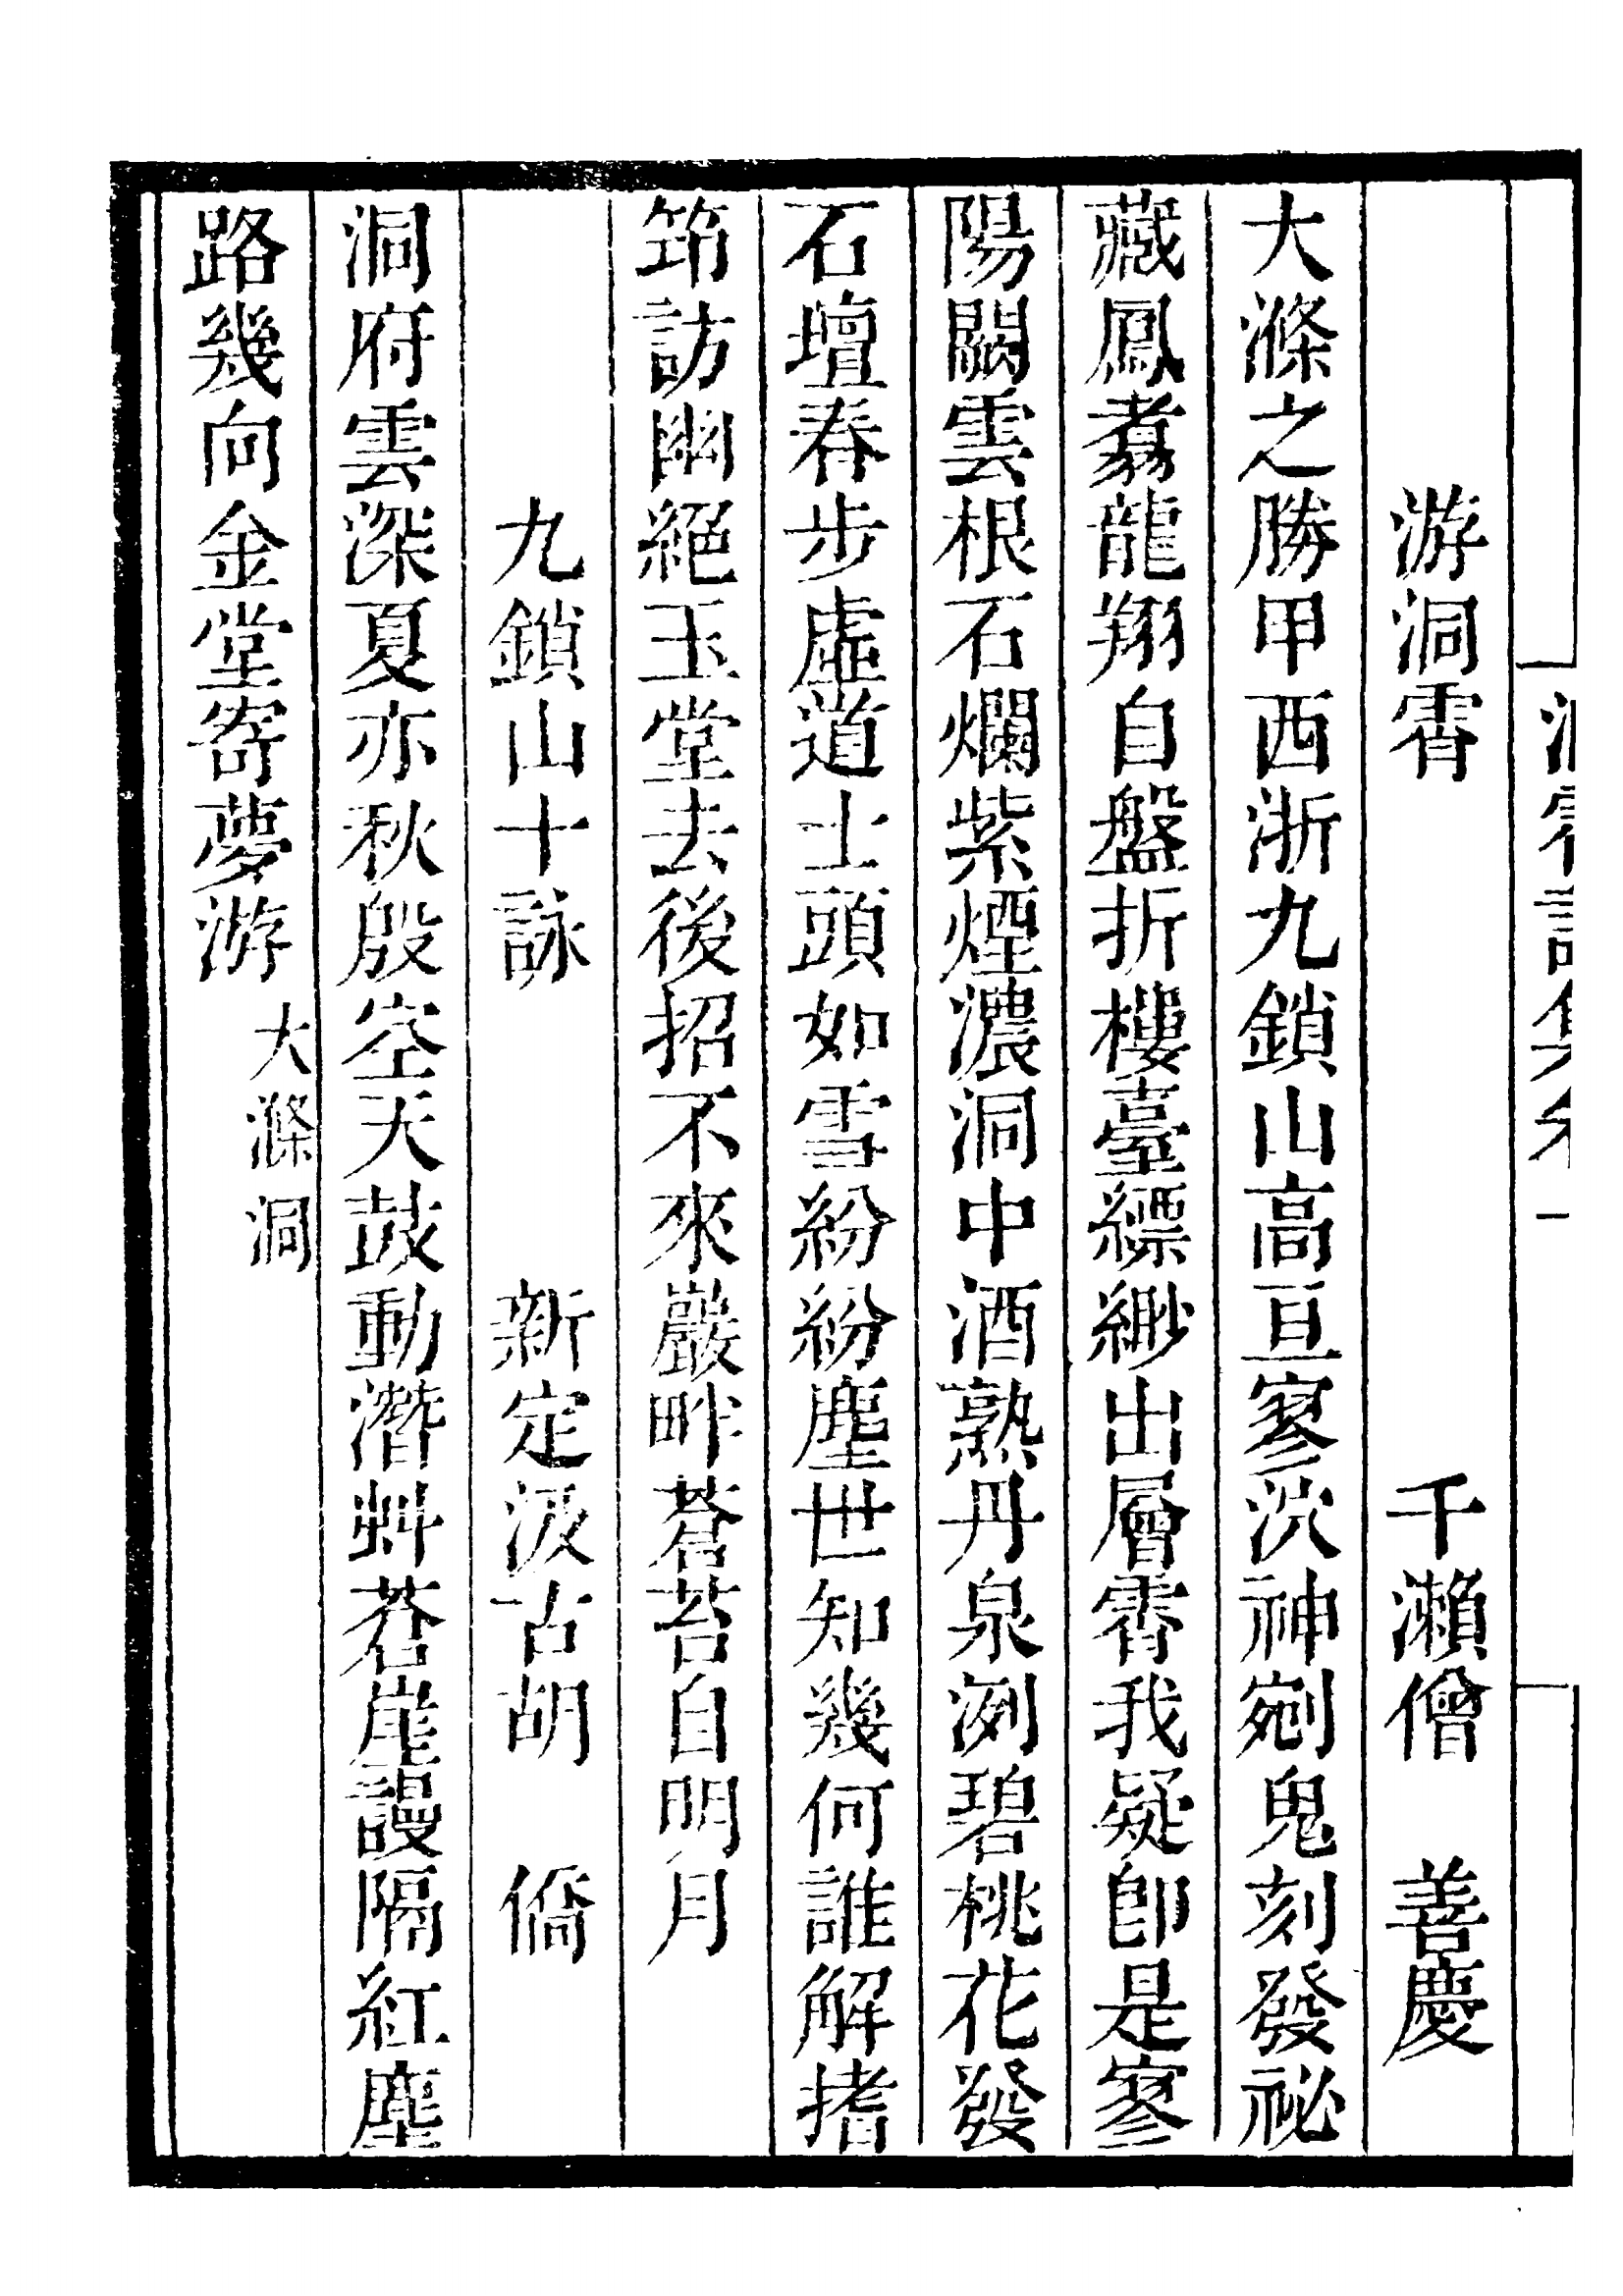 洞霄詩集卷一
游洞霄　千瀨僧　善慶
大滌之勝甲西浙九鎖山高亘寥泬神剜鬼刻發祕
藏鳳翥龍翔自盤折樓臺縹緲出層霄我疑卽是寥
陽闕雲根石爛紫煙濃洞中酒熟丹泉洌碧桃花發
石壇春步虛道士頭如雪紛紛塵世知幾何誰解搘
筇訪幽絕玉堂去後招不來巖畔蒼苔自明月
九鎖山十詠　新定汲古胡　僑
洞府雲深夏亦秋殷空天鼓動潛虯蒼崖謾隔紅塵
路幾向金堂寄夢游大滌洞